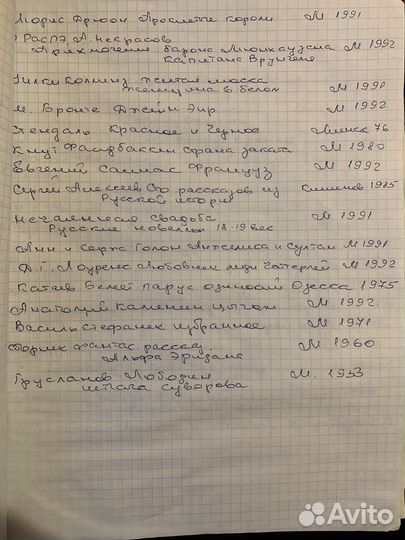 Морис Дрюон Проклятые короли М 1991
Распэ А. Некрасов
Приключения барона Мюнхаузена М 1992
Капитана Врунгеля
Уилки Коллинз Желтая маска
Женщина в белом М 1990
Ш. Бронте Джейн Эйр М 1992
Стендаль Красное и Черное Минск 76
Кнут Фалдбаккен Страна заката М 1980
Евгений Салиас Француз М 1992
Сергей Алексеев Сто рассказов из Кишинев 1985
Русской истории
Нечаянная свадьба М 1991
Русские новеллы 18-19 век
Анн и Серж Голон Анжелика и Султан М 1991
Д.Г. Лоуренс Любовник леди Чатерлей М 1992
Катаев Белеет парус одинокий Одесса 1975
Анатолий Калинин Цыган М 1992
Василь Стефаник избранное М 1971
Сборник фантас. рассказ. М 1960
Альфа Эридана
Грусланов Лободин М. 1953
Шпага Суворова
Avito